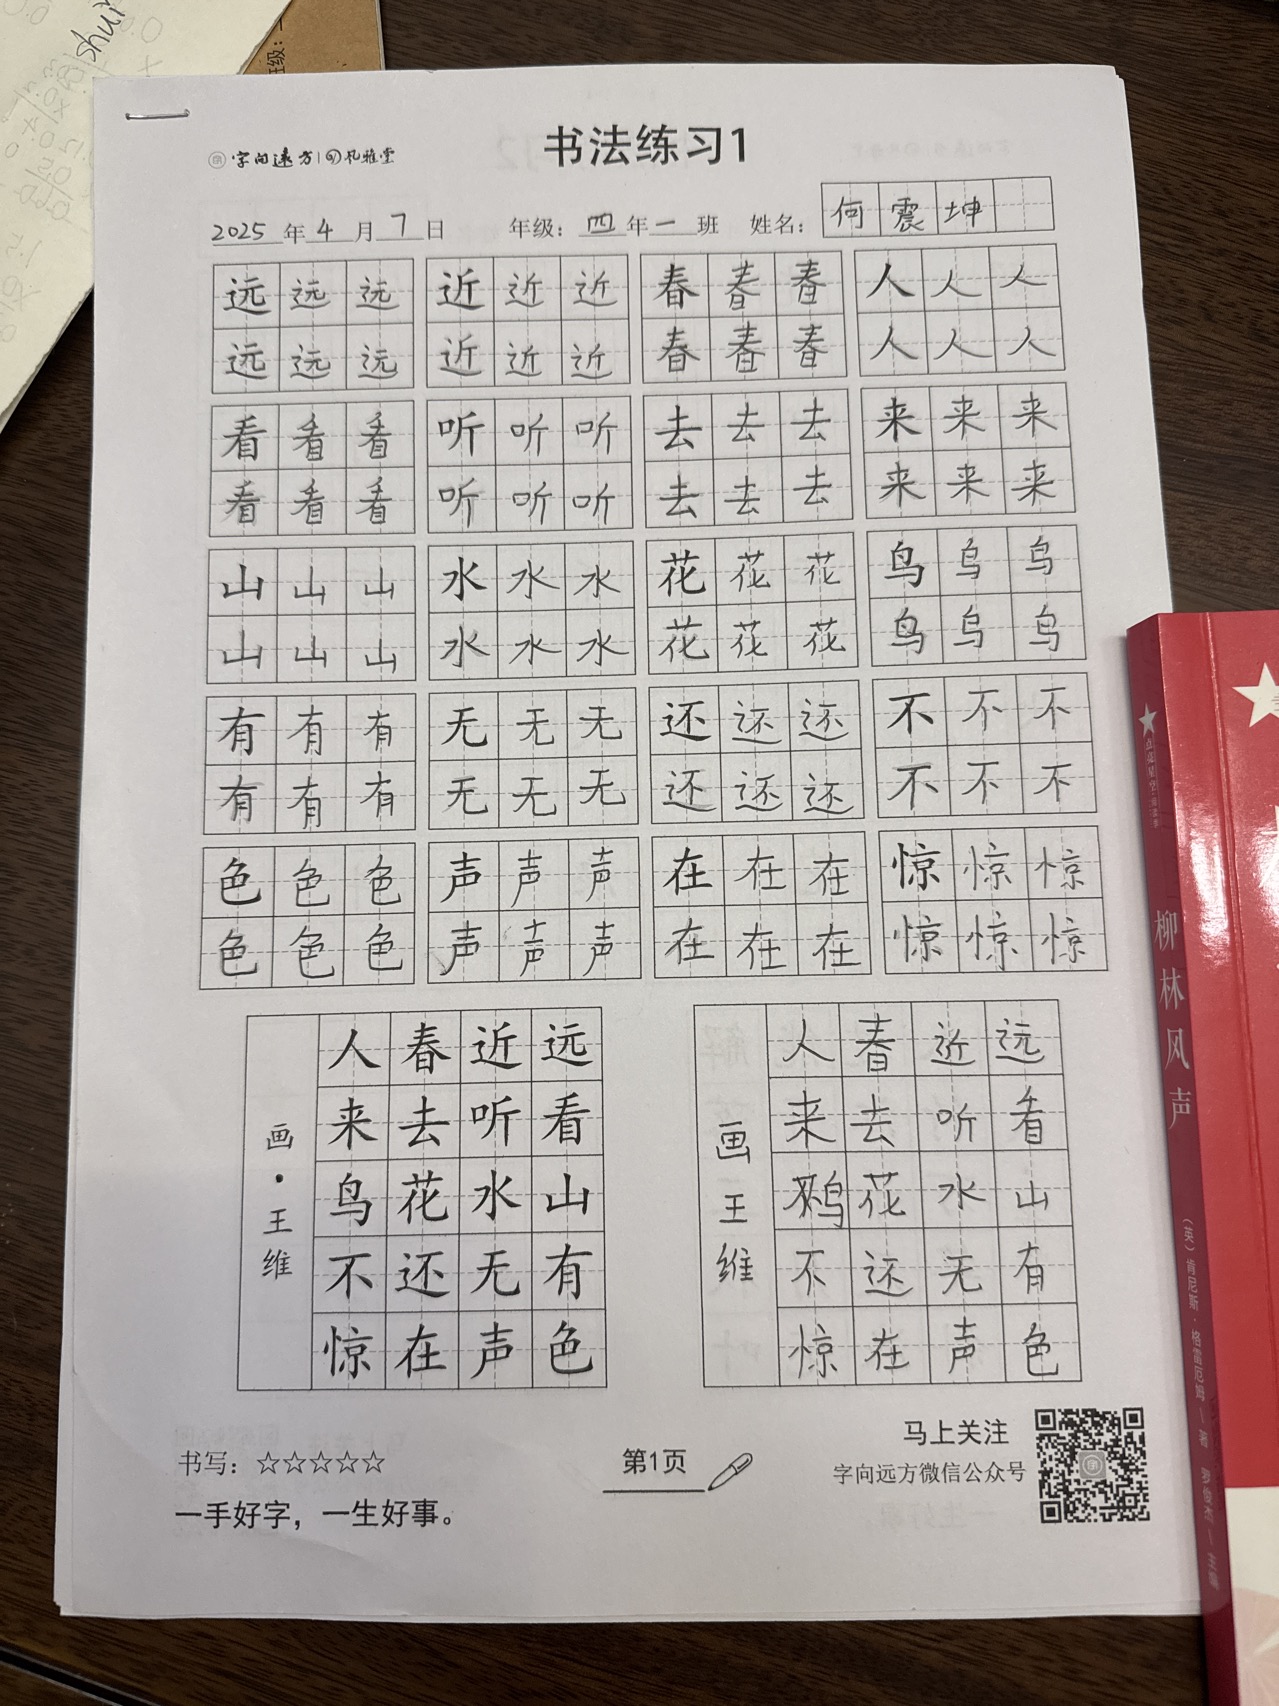 shui
班级:
字向远方 风雅堂
书法练习1
2025年4月7日 年级:四年一班 姓名:何震坤
远远远 近近近 春春春 人人人
远远远 近近近 春春春 人人人
看看看 听听听 去去去 来来来
看看看 听听听 去去去 来来来
山山山 水水水 花花花 鸟鸟鸟
山山山 水水水 花花花 鸟鸟鸟
有有有 无无无 还还还 不不不
有有有 无无无 还还还 不不不
色色色 声声声 在在在 惊惊惊
色色色 声声声 在在在 惊惊惊
远看山有色
近听水无声
春去花还在
人来鸟不惊
画·王维
远看山有色
近听水无声
春去花还在
人来鸟不惊
画王维
书写:☆☆☆☆☆
一手好字,一生好事。
第1页
马上关注
字向远方微信公众号
柳林风声
(英)肯尼斯·格雷厄姆|著 罗俊杰|主编